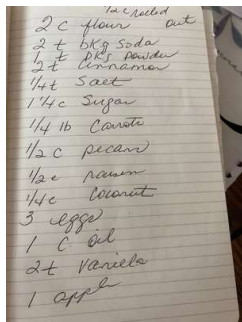 1/2 c rolled
2 c flour out
2 t bkg soda
1 t bkg powder
2 t Cinnamon
1/4 t Salt
1 1/4 c Sugar
1/4 lb Carrots
1/2 c pecans
1/2 c raisin
1/4 c Coconut
3 eggs
1 C oil
2 t Vanilla
1 apple